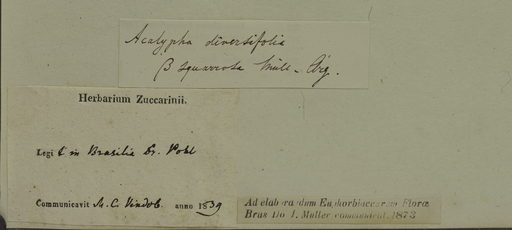 Acalypha diversifolia
β squarrosa Müll-Arg.
Herbarium Zuccarinii.
Legi t in Brasilia Dr. Pohl
Communicavit M. C. Vindob. anno 1839
Ad elaborandum Euphorbiacearum Floræ
Bras Do J. Müller communicat. 1873